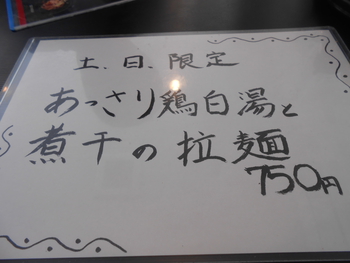 土、日、限定
あっさり鶏白湯と
煮干の拉麺
750円